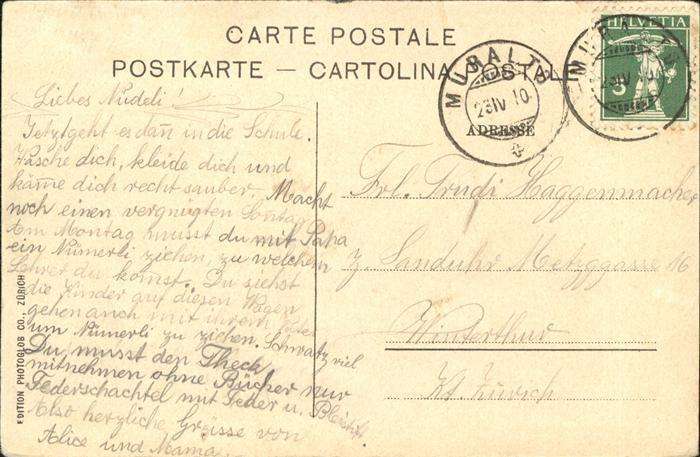 CARTE POSTALE
POSTKARTE — CARTOLINA POSTALE
HELVETIA
5
MURALTO
23 IV 10
MURALTO
IV 10
ADRESSE
Liebes Nudeli!
Jetzt geht es dañ in die Schule.
Wasche dich, kleide dich und
käm̄e dich recht sauber. Macht
noch einen vergnügten Sontag
Am Montag musst du mit Papa
ein Numerli ziehen, zu welchem
Lehrer du komst. Du siehst
die Kinder auf diesen Wagen
gehen auch mit ihrem
um Numerli zu ziehen. Schwatz viel
Du musst den Theck
mitnehmen ohne Bücher nur
Federschachtel mit Feder u. Bleistift
Also herzliche Grüsse von
Alice und Mama.
Frl. Trudi Haggenmacher
z. Sanduhr Metzggasse 16
Winterthur
Kt. Zürich
EDITION PHOTOGLOB CO., ZÜRICH